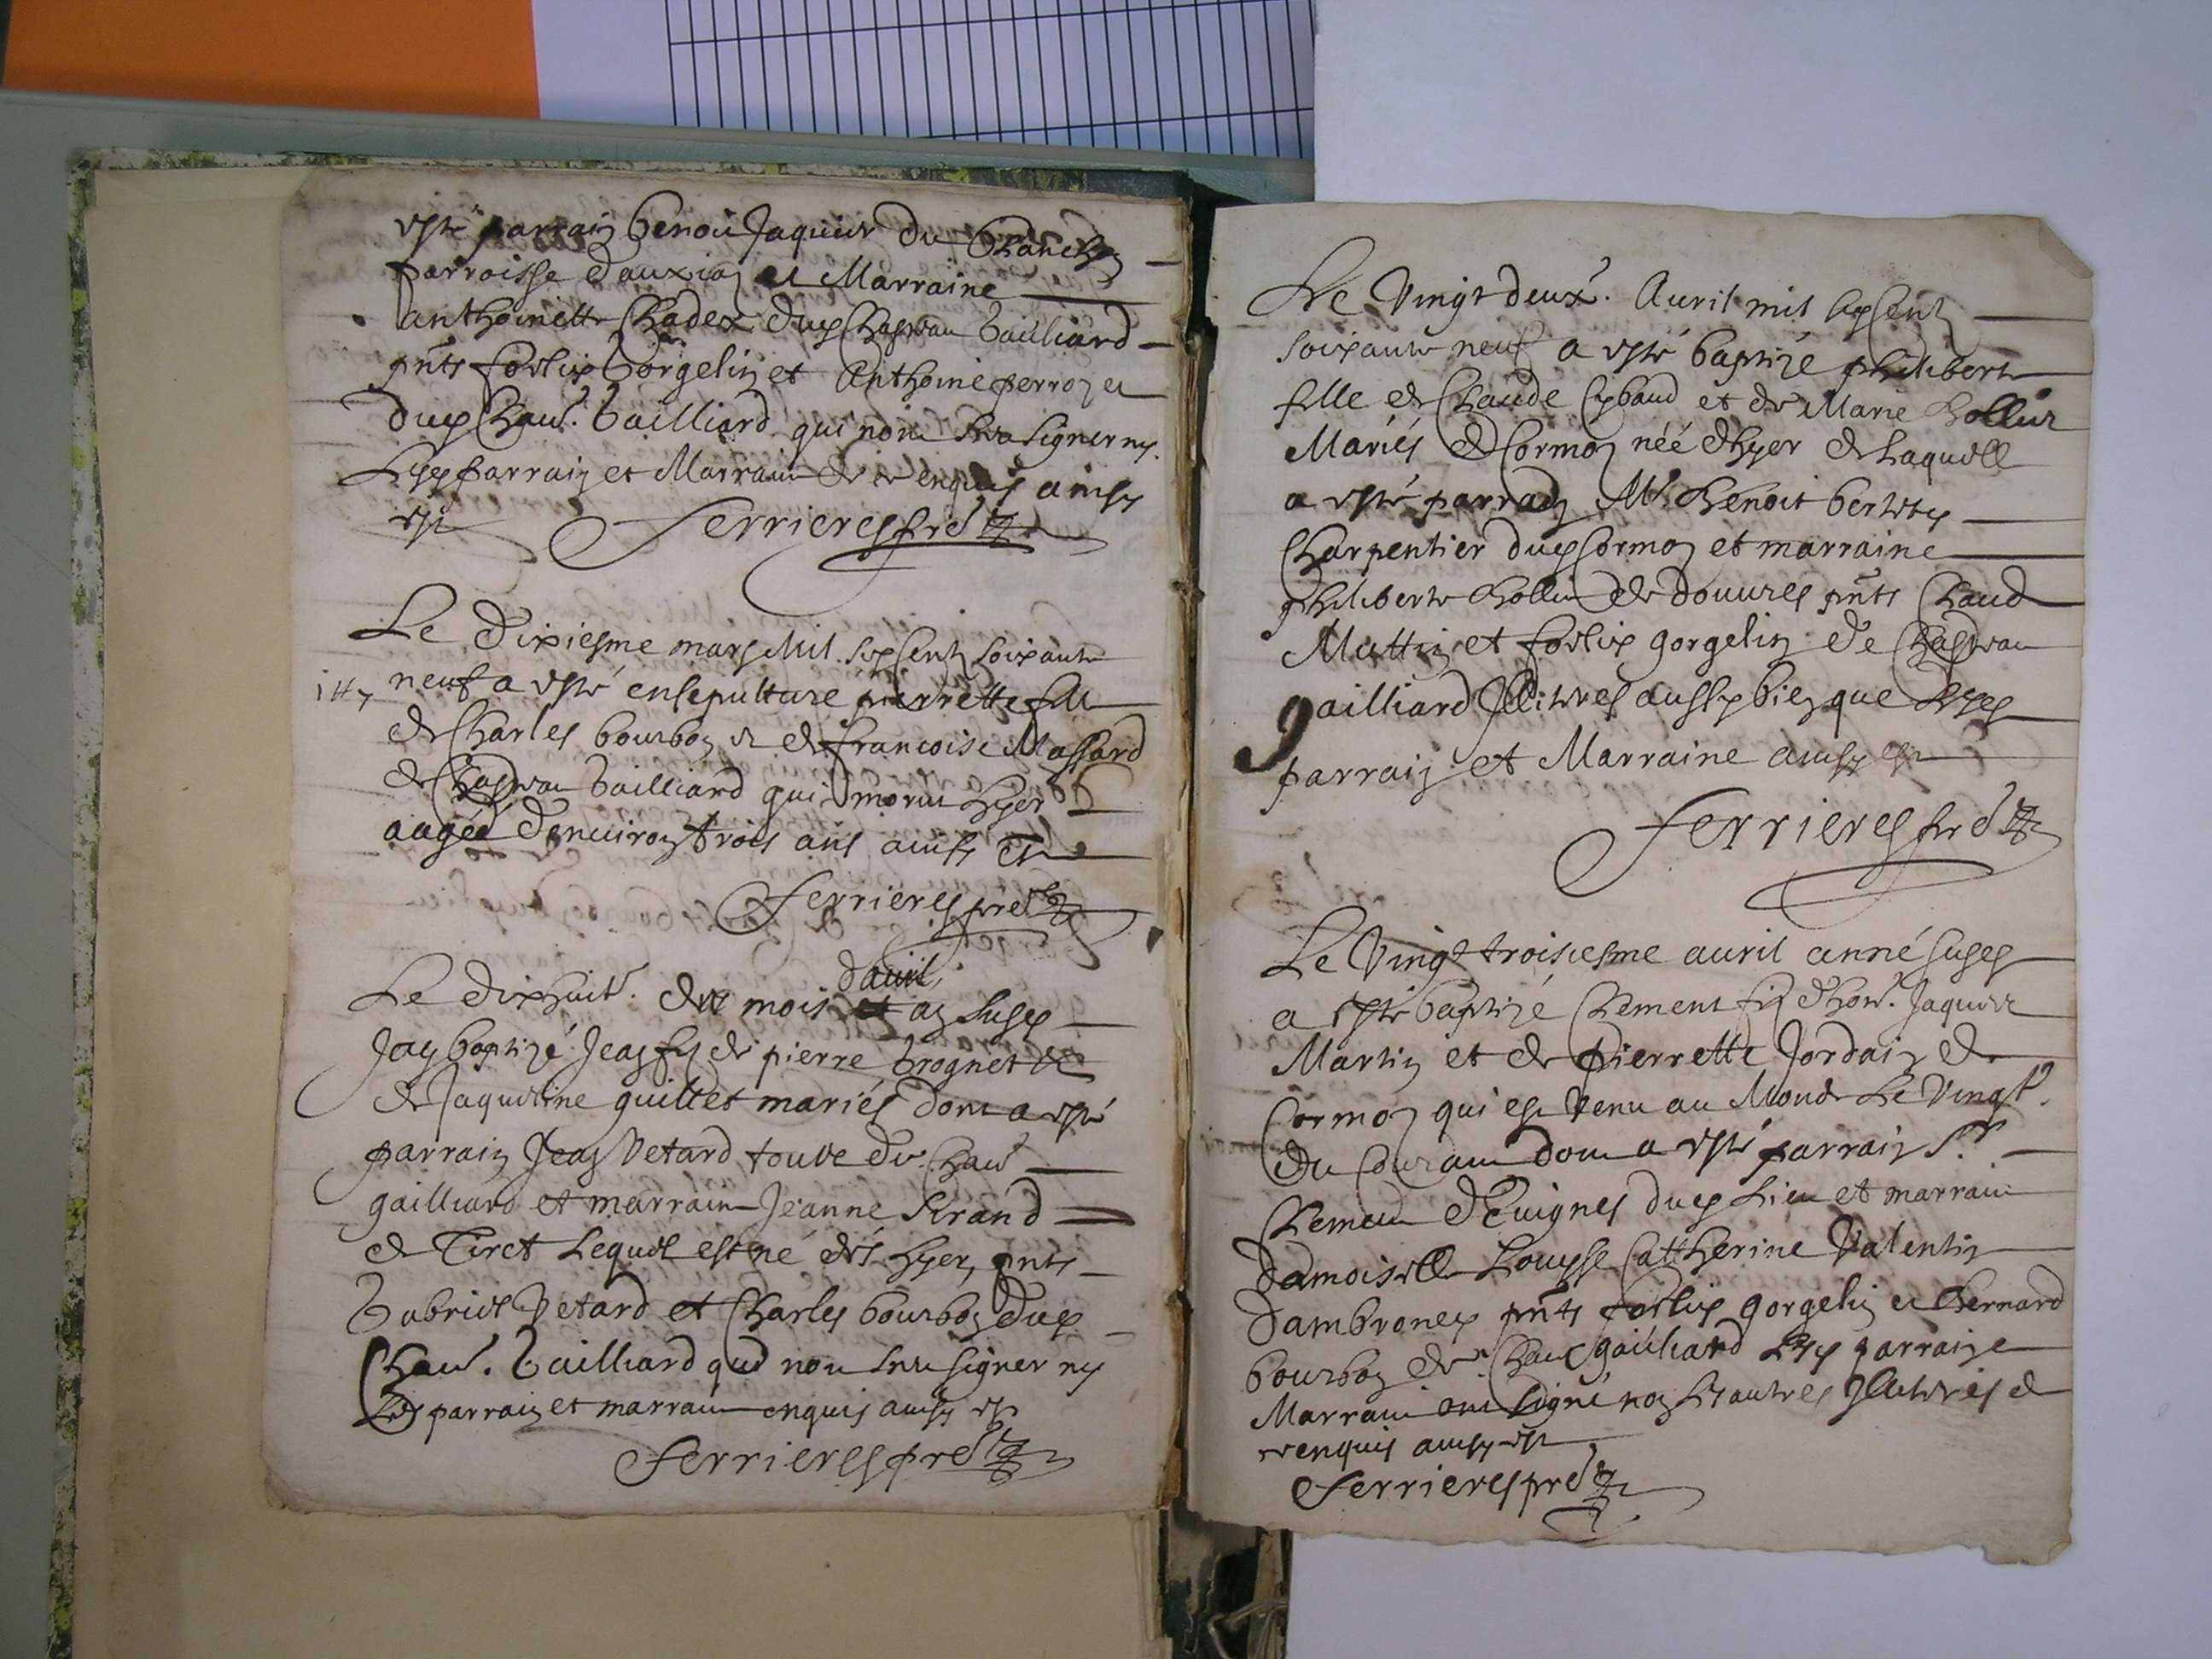 esté parrain benoit Jaquier du blanchon
parroisse dauxian et Marraine
anthoinette Chadex dud Chasteau Gailliard
pnts foelix Gorgelin et Anthoine perron et
dud Chau. Gailliard qui nont sceu signer ny
Lesd parrain et Marraine de ce enquis ainsy
est Ferrieres pre
Le dixiesme mars Mil sepcentz soixante
neuf a esté ensepulture pierrette fille
de Charles bourbon et de francoise Massard
de Chasteau Gailliard qui morut hyer
aagée denuiron trois ans ainsy est
Ferrieres pre
dauril
Le dixhuit. du mois et an susd
Jay baptizé Jean fs de pierre brognet et
de Jaqueline guillet mariés dont a esté
parrain Jean Vetard touve du Chau
gailliard et marraine Jeanne Sirand
de Tiret Lequel est né dés hyer, pnts
Gabriel Vetard et Charles bourbon dud
Chau. Gailliard qui nont sceu signer ny
Lesd parrain et marraine enquis ainsy est
Ferrieres pre
Le Vingt deux. Auril mil sepcentz
soixante neuf a esté baptizé philiberte
fille de Claude Cybaud et de Marie Bollier
Mariés de Cormoz néé dhyer de Laquelle
a esté parrain Mr. Benoit berthet
Charpentier dud Cormoz et marraine
philiberte Bollier de douures pnts Claud
Muttin et foelix gorgelin de Chasteau
gailliard Jlliterés aussy bien que Lesd
parrain et Marraine ainsy est
Ferrieres pre
Le Vingt troisiesme auril année susd
a esté baptizé Clement fiz dhon. Jaques
Martin et de pierrette Jordain de
Cormoz qui est venu au Monde Le Vingt
du Courant dont a esté parrain Sr.
Clement dEuignes dud Lieu et marraine
damoiselle Louysse Catherine Valentin
dambroney pnts foelix gorgelin et Bernard
bourbon de Chau gailliard Lesd parrain et
Marraine ont signé non Lesautres Jlliterés de
ce enquis ainsy est
Ferrieres pre